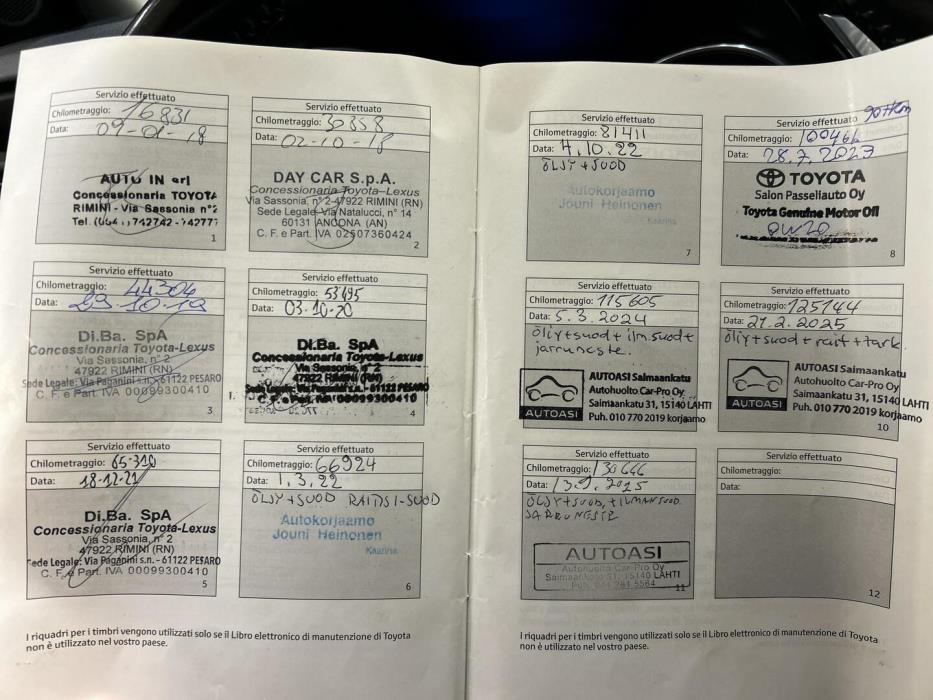 Servizio effettuato
Chilometraggio: 16831
Data: 09-01-18
AUTO IN srl
Concessionaria TOYOTA
RIMINI - Via Sassonia n°2
1
Servizio effettuato
Chilometraggio: 30358
Data: 02-10-18
DAY CAR S.p.A.
Concessionaria Toyota-Lexus
Via Sassonia, n° 2-47922 RIMINI (RN)
Sede Legale: Via Natalucci, n° 14
60131 ANCONA (AN)
C. F. e Part. IVA 02507360424
2
Servizio effettuato
Chilometraggio: 44304
Data: 29-10-19
Di.Ba. SpA
Concessionaria Toyota-Lexus
Via Sassonia, n° 2
47922 RIMINI (RN)
Sede Legale: Via Paganini s.n. - 61122 PESARO
C. F. e Part. IVA 00099300410
3
Servizio effettuato
Chilometraggio: 53495
Data: 03-10-20
Di.Ba. SpA
Concessionaria Toyota-Lexus
Via Sassonia, n° 2
47922 RIMINI (RN)
4
Servizio effettuato
Chilometraggio: 65310
Data: 18-12-21
Di.Ba. SpA
Concessionaria Toyota-Lexus
Via Sassonia, n° 2
47922 RIMINI (RN)
Sede Legale: Via Paganini s.n. - 61122 PESARO
C. F. e Part. IVA 00099300410
5
Servizio effettuato
Chilometraggio: 66924
Data: 1.3.22
ÖLJY+SUOD RAITISI-SUOD
Autokorjaamo
Jouni Heinonen
Kaarina
6
I riquadri per i timbri vengono utilizzati solo se il Libro elettronico di manutenzione di Toyota
non è utilizzato nel vostro paese.
Servizio effettuato
Chilometraggio: 81411
Data: 4.10.22
ÖLJY+SUOD
Autokorjaamo
Jouni Heinonen
Kaarina
7
Servizio effettuato
Chilometraggio:
Data: 28.7.2023
TOYOTA
Salon Passeliauto Oy
Toyota Genuine Motor Oil
0W20
8
Servizio effettuato
Chilometraggio: 115605
Data: 5.3.2024
öljy+suod+ilm.suod+
jarruneste.
AUTOASI
AUTOASI Saimaankatu
Autohuolto Car-Pro Oy
Saimaankatu 31, 15140 LAHTI
Puh. 010 770 2019 korjaamo
Servizio effettuato
Chilometraggio: 125744
Data: 27.2.2025
öljy+suod+rait+tark.
AUTOASI
AUTOASI Saimaankatu
Autohuolto Car-Pro Oy
Saimaankatu 31, 15140 LAHTI
Puh. 010 770 2019 korjaamo
10
Servizio effettuato
Chilometraggio: 130646
Data:
ÖLJY+SUOD,+ILMANSUOD.
JARRUNESTE
AUTOASI
Autohuolto Car-Pro Oy
Saimaankatu 31, 15140 LAHTI
11
Servizio effettuato
Chilometraggio:
Data:
12
I riquadri per i timbri vengono utilizzati solo se il Libro elettronico di manutenzione di Toyota
non è utilizzato nel vostro paese.